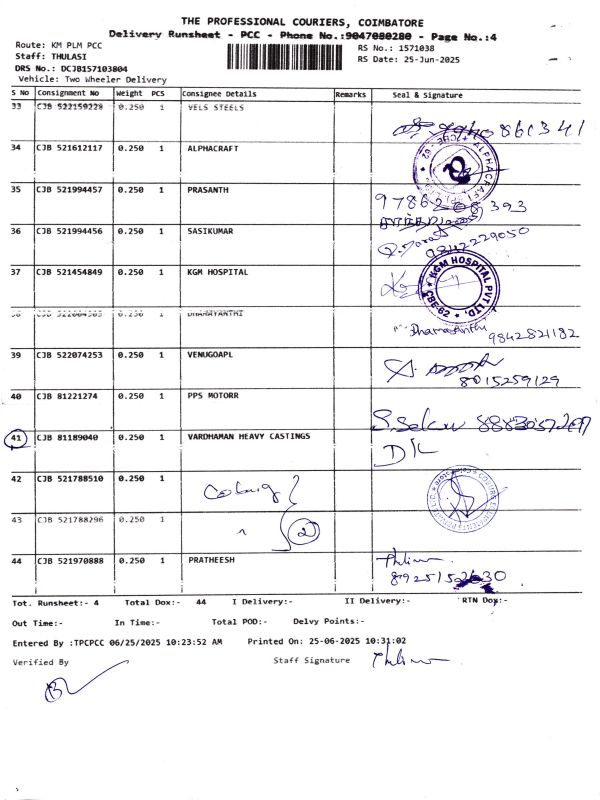 THE PROFESSIONAL COURIERS, COIMBATORE
Delivery Runsheet - PCC - Phone No.:9047080280 - Page No.:4
Route: KM PLM PCC
RS No.: 1571038
Staff: THULASI
RS Date: 25-Jun-2025
DRS No.: DCJB157103804
Vehicle: Two Wheeler Delivery
S No Consignment No Weight PCS Consignee Details Remarks Seal & Signature
33 CJB 522159228 0.250 1 VELS STEELS
861341
34 CJB 521612117 0.250 1 ALPHACRAFT
ALPHACRAFT
35 CJB 521994457 0.250 1 PRASANTH
393
36 CJB 521994456 0.250 1 SASIKUMAR
9842229050
37 CJB 521454849 0.250 1 KGM HOSPITAL
KGM HOSPITAL PVT LTD. CBE-62
38 0.250 1 DHAMAYANTHI
9842821182
39 CJB 522074253 0.250 1 VENUGOAPL
8015259129
40 CJB 81221274 0.250 1 PPS MOTORR
S. Selvan
41 CJB 81189040 0.250 1 VARDHAMAN HEAVY CASTINGS
D/L
42 CJB 521788510 0.250 1
43 CJB 521788296 0.250 1
2
44 CJB 521970888 0.250 1 PRATHEESH
Tot. Runsheet:- 4 Total Dox:- 44 I Delivery:- II Delivery:- RTN Dox:-
Out Time:- In Time:- Total POD:- Delvy Points:-
Entered By :TPCPCC 06/25/2025 10:23:52 AM Printed On: 25-06-2025 10:31:02
Verified By Staff Signature